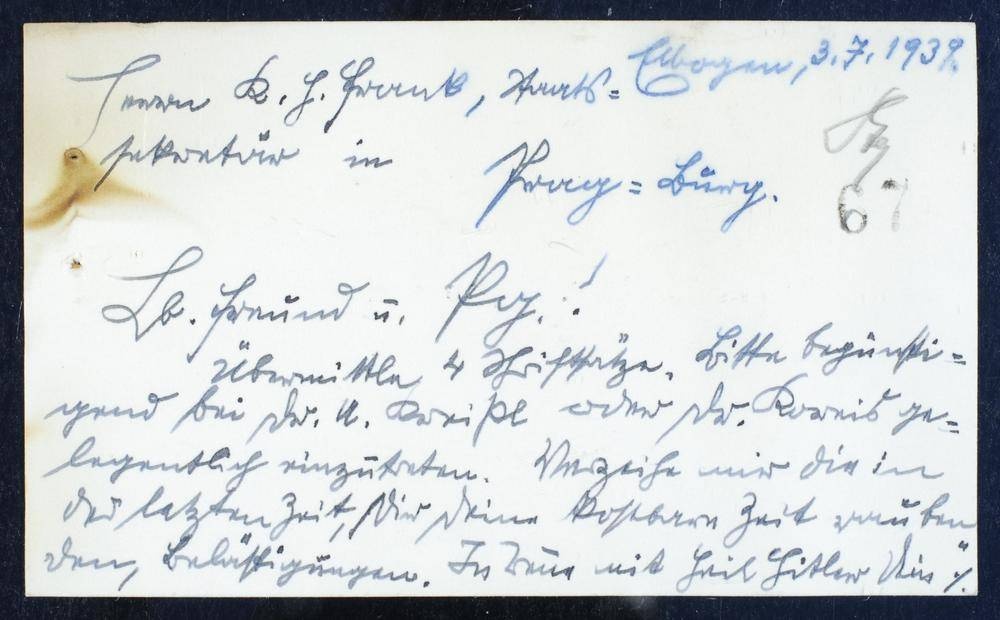 Elbogen, 3.7.1939.
Herrn K. H. Frank, Staats=
sekretär in
Prag=Burg.
67
Lb. Freund u. Pg.!
Übermittle 4 Schriftsätze. Bitte begünsti=
gend bei Dr. A. Kreißl oder Dr. Koreis ge=
legentlich einzutreten. Verzeihe mir die in
der letzten Zeit, Dir Deine kostbare Zeit rauben
den, Belästigungen. In Treue mit Heil Hitler Dein